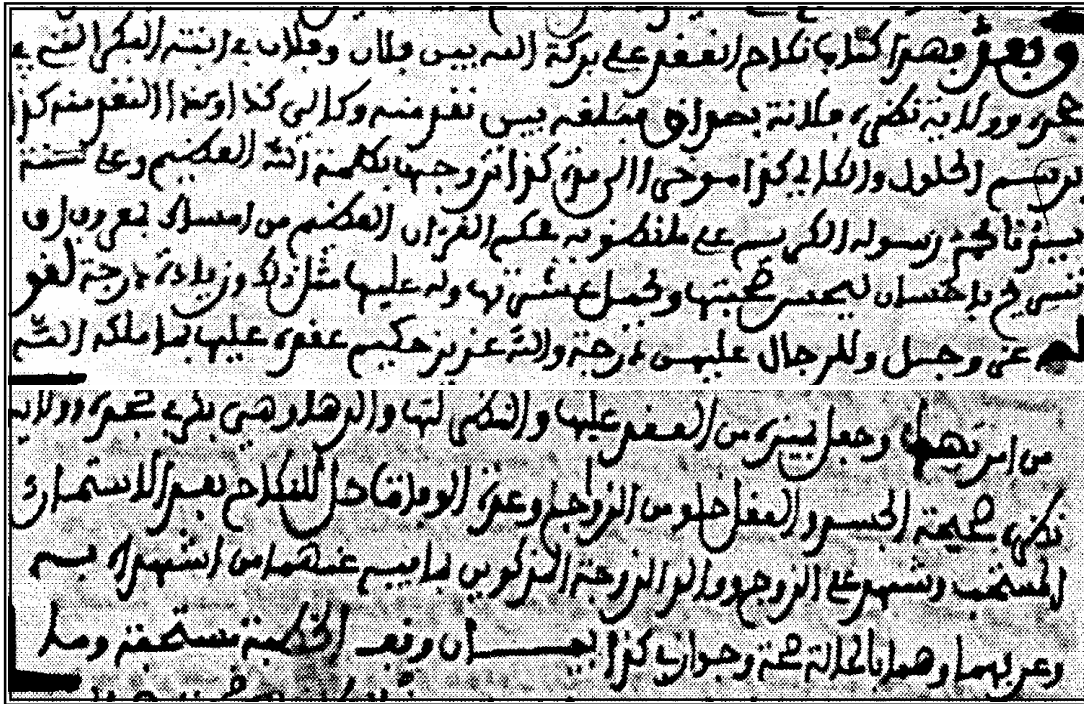 وبعد فهذا كتاب نكاح انعقد على بركة الله بين فلان وفلان في ابنته البكر الفتى في
حجره وولاية نظره فلانة بصداق مبلغه بين نقد منه وكالي كذا وكذا النقد منه كذا
برسم الحلول والكالي كذا موخر الى مدة كذا تزوجها بكلمة الله العظيم وعلى سنة
سيدنا محمد رسوله الكريم على ما نطق به محكم القرءان العظيم من امساك بمعروف او
تسريح باحسان ليحسن صحبتها ويجمل عشرتها وله عليها مثل ذلك وزيادة درجة لقو
له عز وجل وللرجال عليهن درجة والله عزيز حكيم عقده عليها بما ملكه الله
من امرها وجعل بيده من العقد عليها والنظر لها والدها وهي بكر في حجره وولاية
نظره صحيحة الجسم والعقل خلو من الزوج وعدة الوفاة حل للنكاح بعد الاستمار
المستحب وشهد على الزوج ووالد الزوجة المذكورين بما فيه عنهما من اشهداه به
وعرفهما وهما بالحالة صحة وجواز في كذا بيـــان وبعد الخطبة نستحقة وصلـ